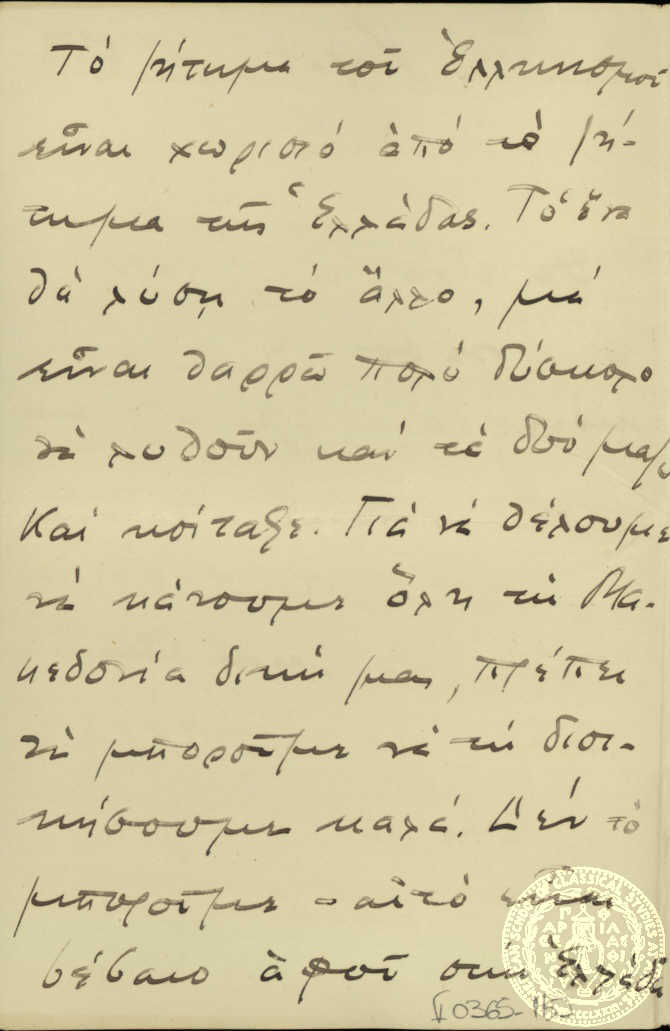 Τὸ ζήτημα τοῦ Ἑλληνισμοῦ
εἶναι χωριστὸ ἀπὸ τὸ ζή-
τημα τῆς Ἑλλάδας. Τὸ ἕνα
θὰ λύσῃ τὸ ἄλλο, μὰ
εἶναι θαρρῶ πολὺ δύσκολο
νὰ λυθοῦν καὶ τὰ δυό μαζὺ
Καὶ κοίταξε. Γιὰ νὰ θέλουμε
νὰ κάνουμε ὅλη τὴ Μα-
κεδονία δική μας, πρέπει
νὰ μποροῦμε νὰ τὴ διοι-
κήσουμε καλά. Δὲν τὸ
μποροῦμε - αὐτὸ εἶναι
βέβαιο ἀφοῦ στὴν Ἑλλάδα
0365-115